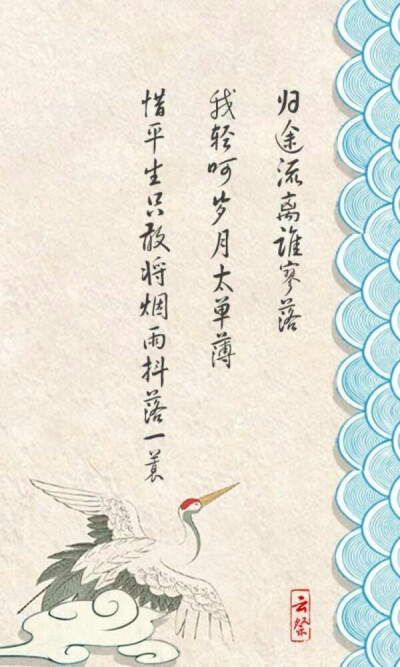 归途流离谁寥落
我轻呵岁月太单薄
惜平生只敢将烟雨抖落一蓑
云祭